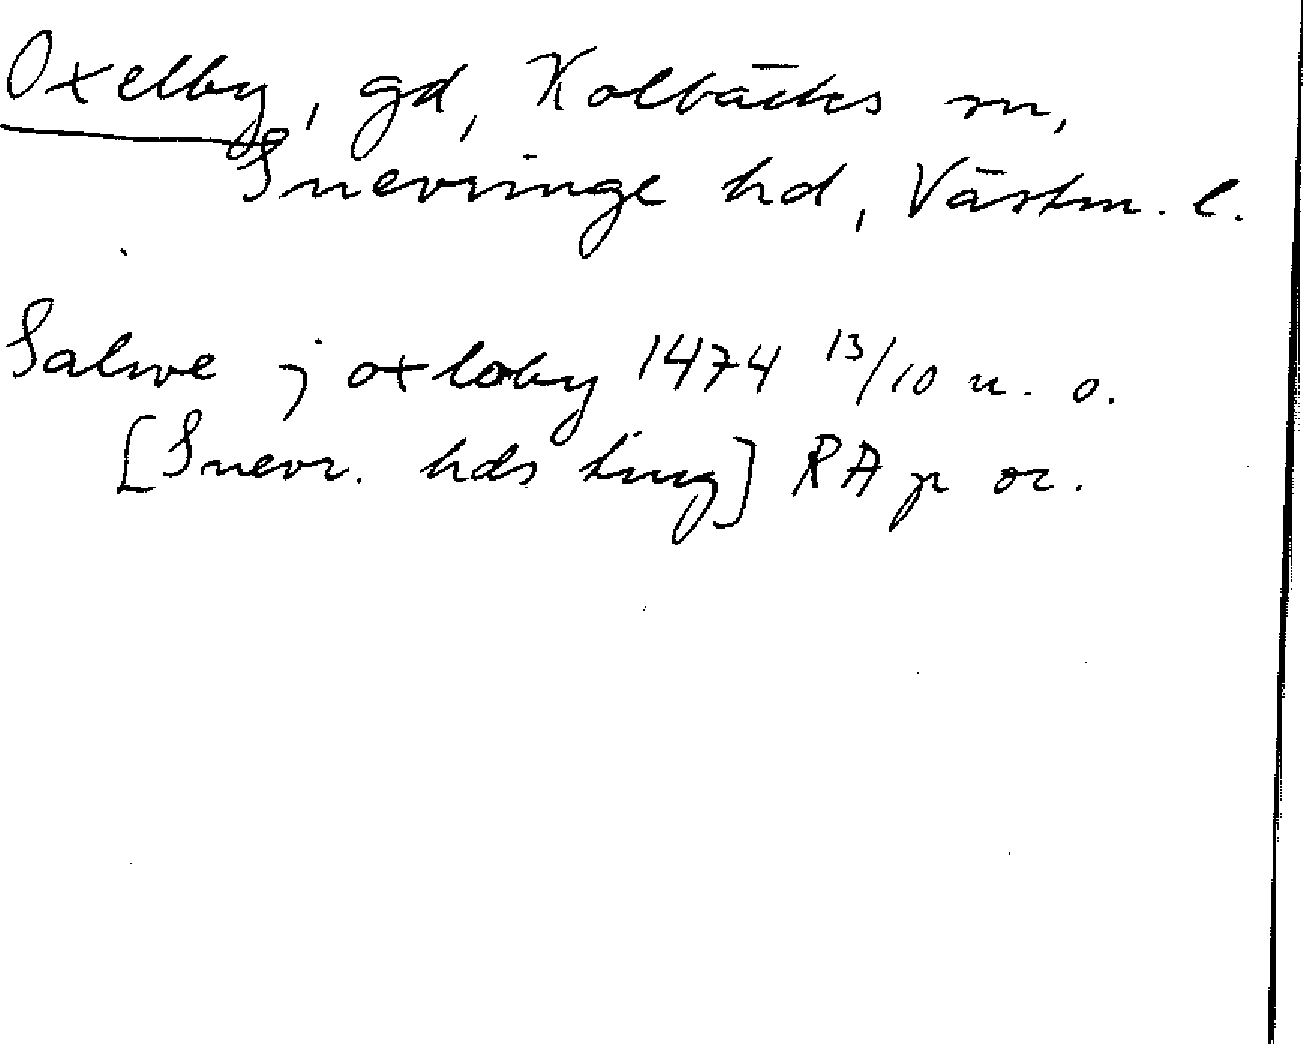 Oxelby, gd, Kolbäcks sn,
Snevringe hd, Västm. l.
Salwe j oxloby 1474 13/10 u. o.
[Snevr. hds ting] RA p or.